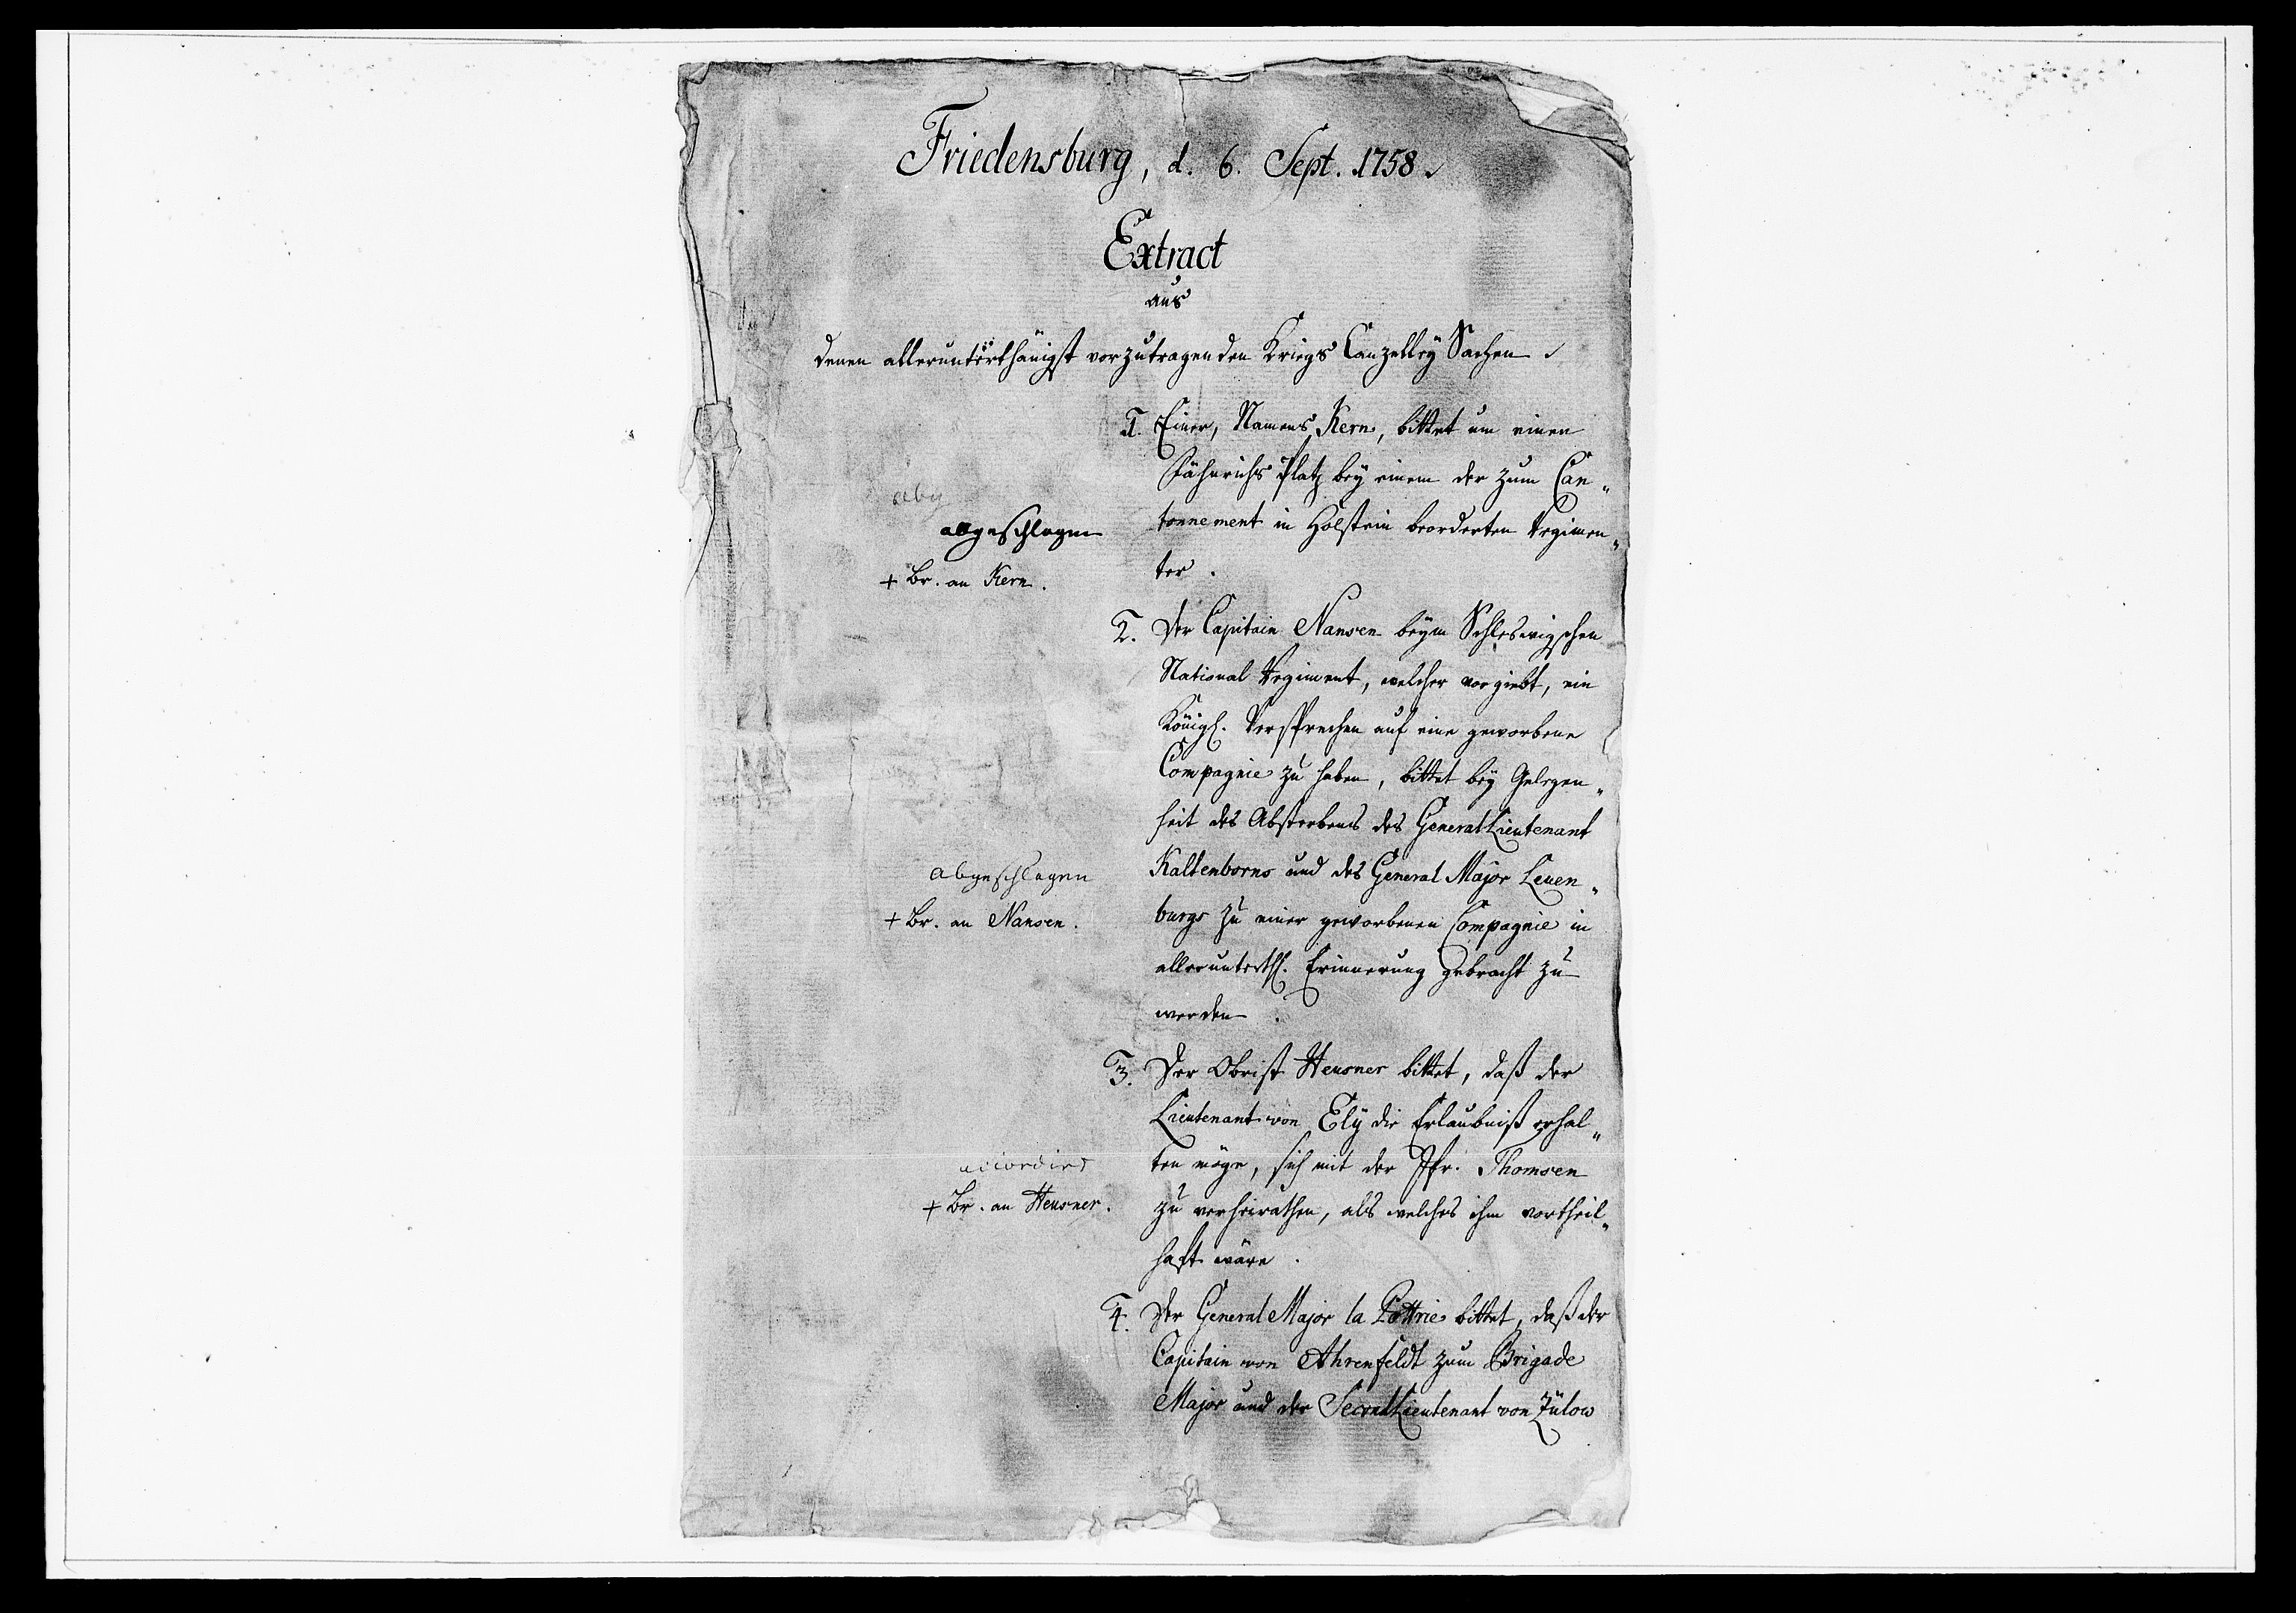 Friedensburg, d. 6. Sept. 1758.
Extract
aus
denen allerunterthänigst vorzutragenden Kriegs Canzelley Sachen.
1. Einer, Namens Kern, bittet um einen
Fähnrichs Platz bey einem der zum Can„
tonnement in Holstein beorderten Regimen„
ter.
abg
abgeschlagen
+ Br. an Kern.
2. Der Capitain Nansen beym Schleswigschen
National Regiment, welcher vorgiebt, ein
Königl. Versprechen auf eine geworbene
Compagnie zu haben, bittet bey Gelegen„
heit des Absterbens des General Lieutenant
Kaltenborns und des General Major Leuen„
burgs zu einer geworbenen Compagnie in
allerunterth. Erinnerung gebracht zu
werden.
abgeschlagen
+ Br. an Nansen.
3. Der Obrist Heusner bittet, daß der
Lieutenant von Ely die Erlaubniß erhal„
ten möge, sich mit der Jfr. Thomsen
zu verheirathen, als welches ihm vortheil„
haft wäre.
accordirt
+ Br. an Heusner.
4. Der General Major la Pottrie bittet, daß der
Capitain von Ahrenfeldt zum Brigade
Major und der Second Lieutenant von Zülow